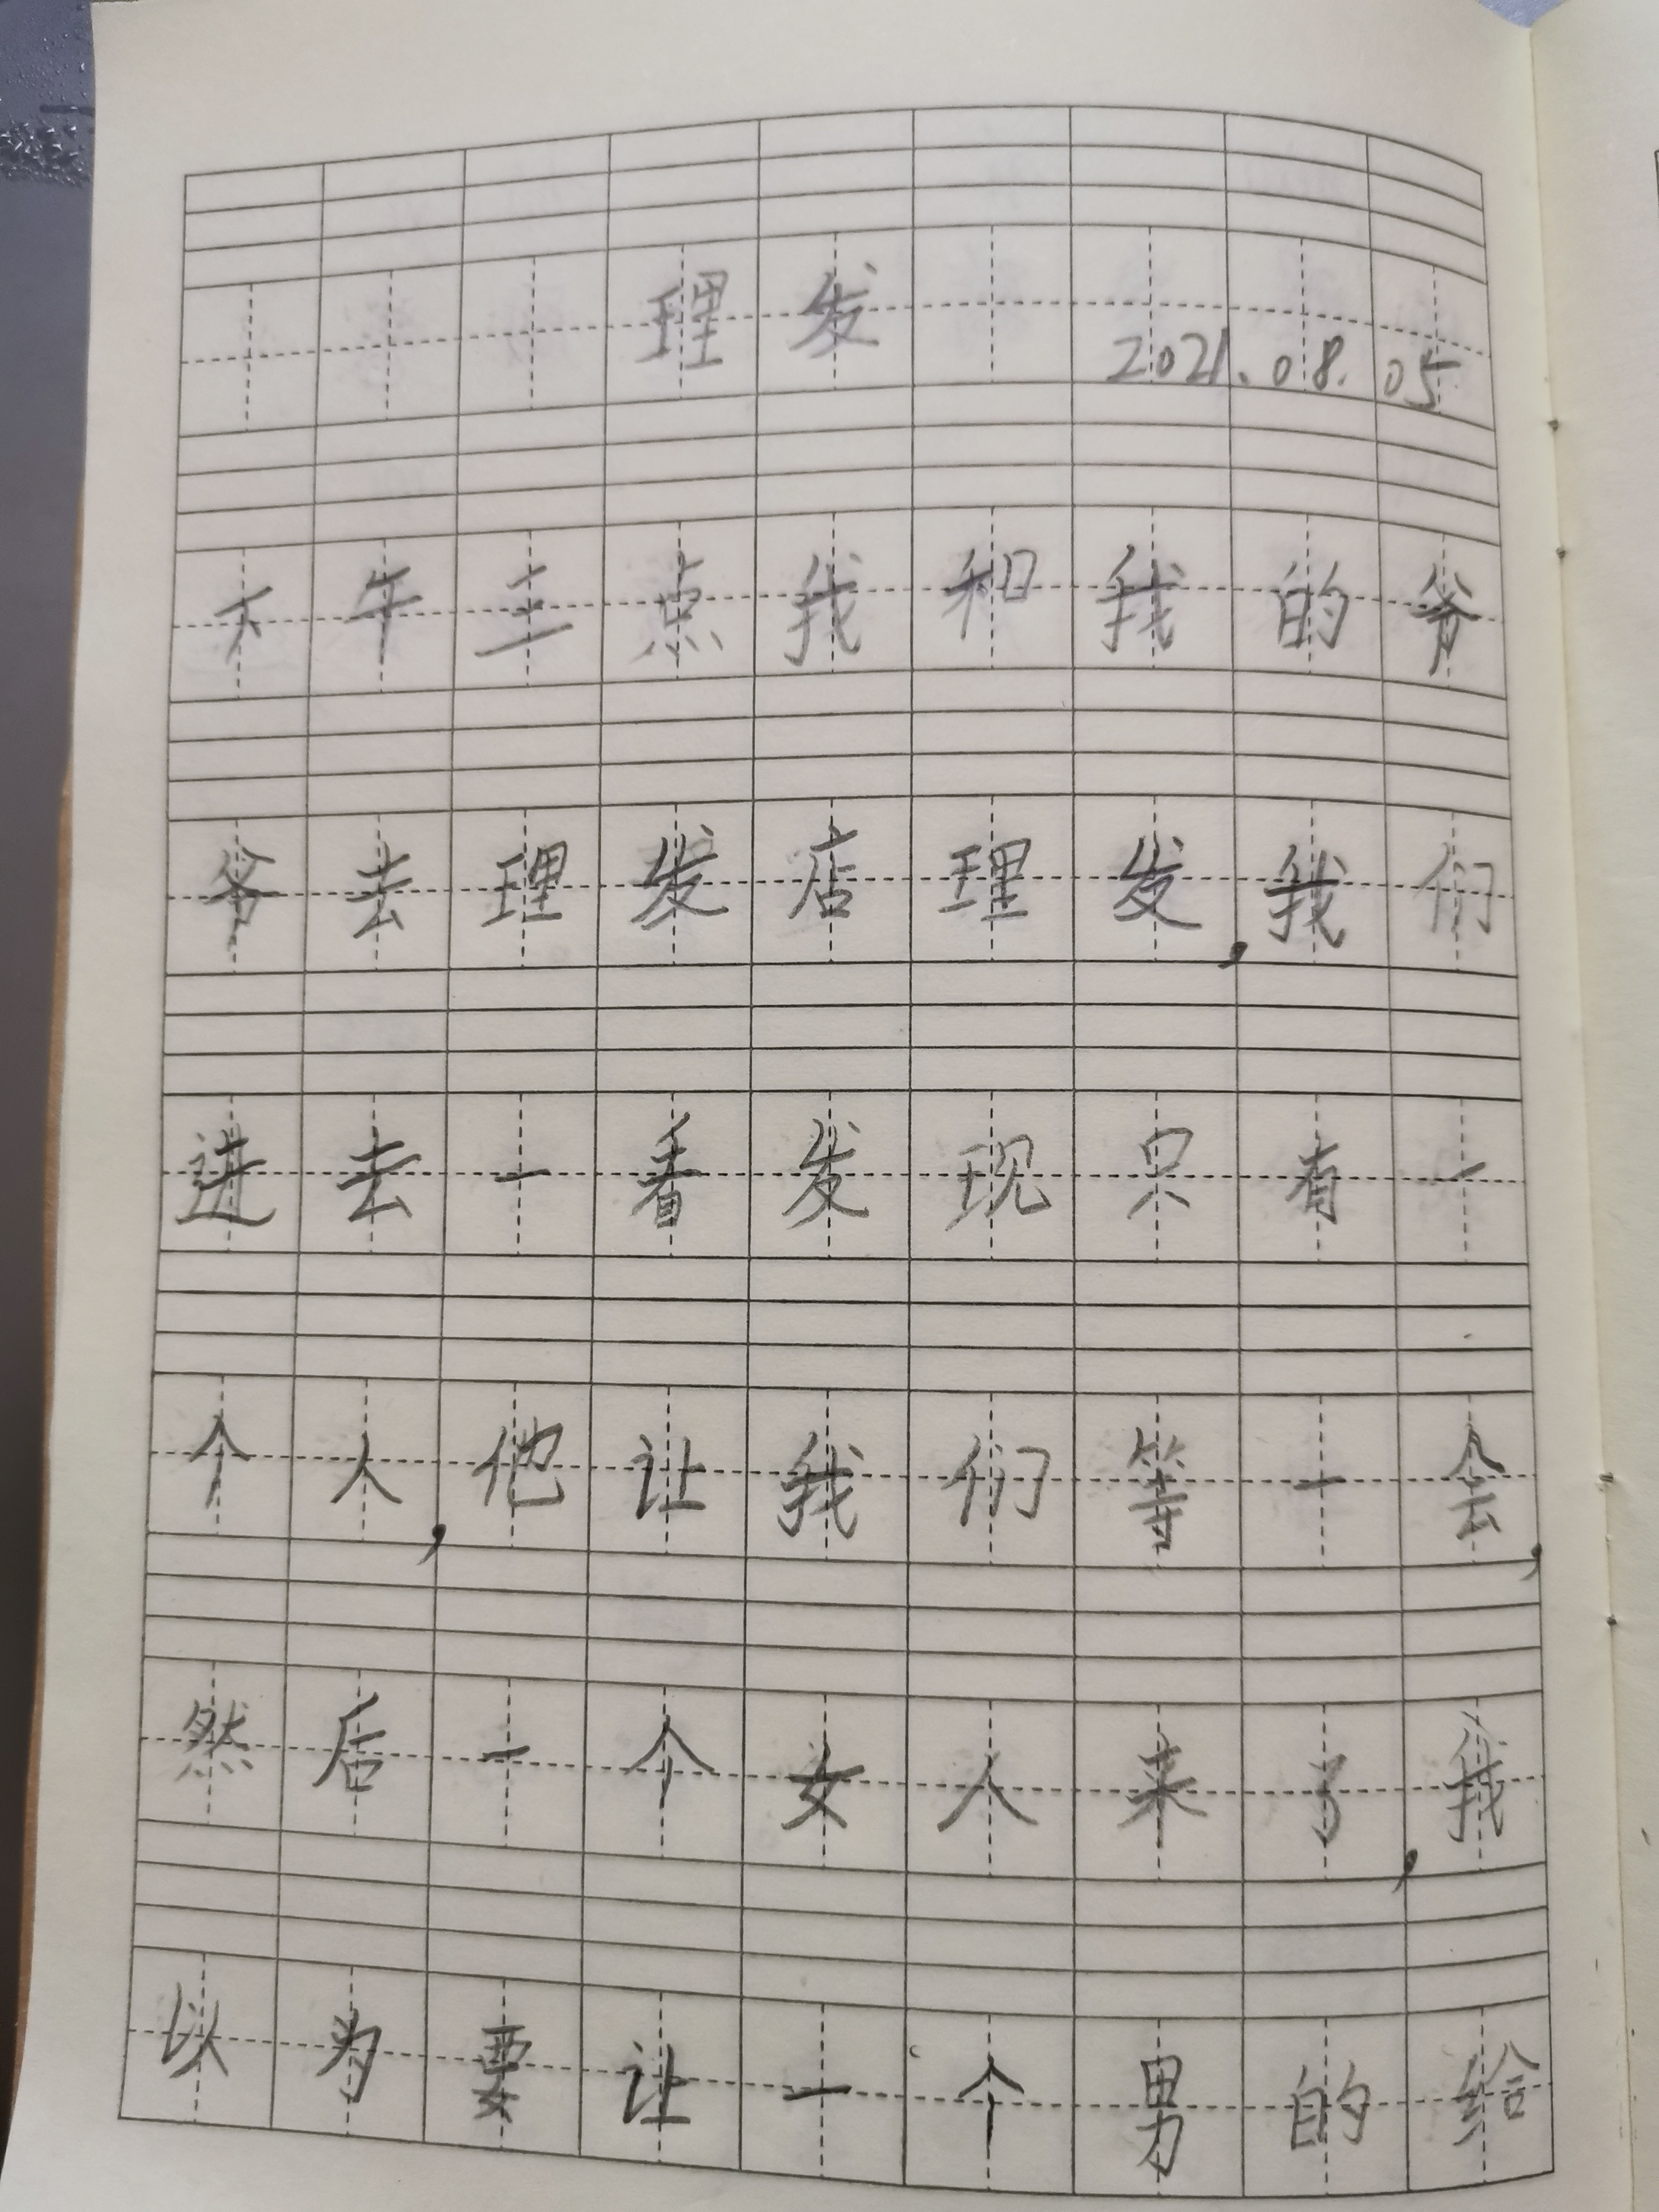 理发
2021.08.05
下午三点我和我的爷
爷去理发店理发,我们
进去一看发现只有一
个人,他让我们等一会,
然后一个女人来了,我
以为要让一个男的给